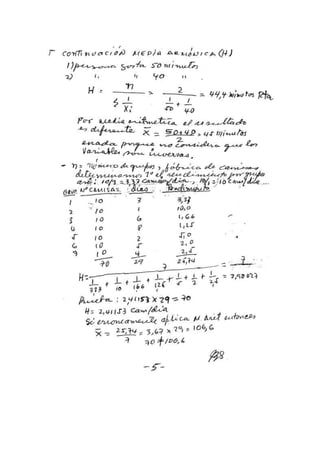 CONTINUACIÓN MEDIA ARMÓNICA (H)
1) persona gasta 50 minutos
2) " " 40 "
H = n / Σ 1/Xi = 2 / 1/50 + 1/40 = 44,4 minutos Rta
Por media aritmética el resultado
es diferente X = 50+40 / 2 = 45 minutos
errada porque no considera que los
Variables son inversas.
- n = número de grupos, fábrica de camisas
determinamos 1º el rendimiento por grupo
así: 10/3 = 3,33 camisas/día, 10/1 = 10 cam/día
GRUPO Nº CAMISAS días Rendimiento
1 10 3 3,33
2 10 1 10,0
3 10 6 1,66
4 10 8 1,25
5 10 2 5,0
6 10 5 2,0
7 10 4 2,5
70 29 25,74
H = 7 / 1/3,33 + 1/10 + 1/1,66 + 1/1,25 + 1/5 + 1/2 + 1/2,5 = 7 /
Prueba: 2,41153 x 29 = 70
H = 2,41153 Cam/día
Si erroneamente aplica M. Arit entonces
X = 25,74 / 7 = 3,67 x 29 = 106,6
70 ≠ 106,6
-5-